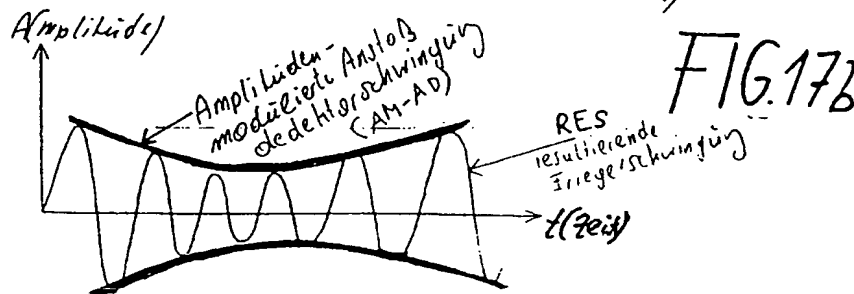 A(mplitüde)
FIG.17b
Amplitüden-
modülierte Anstoß
dedektorschwingüng
(AM-AD)
RES
resultierende
Erregerschwingüng
t(Zeit)